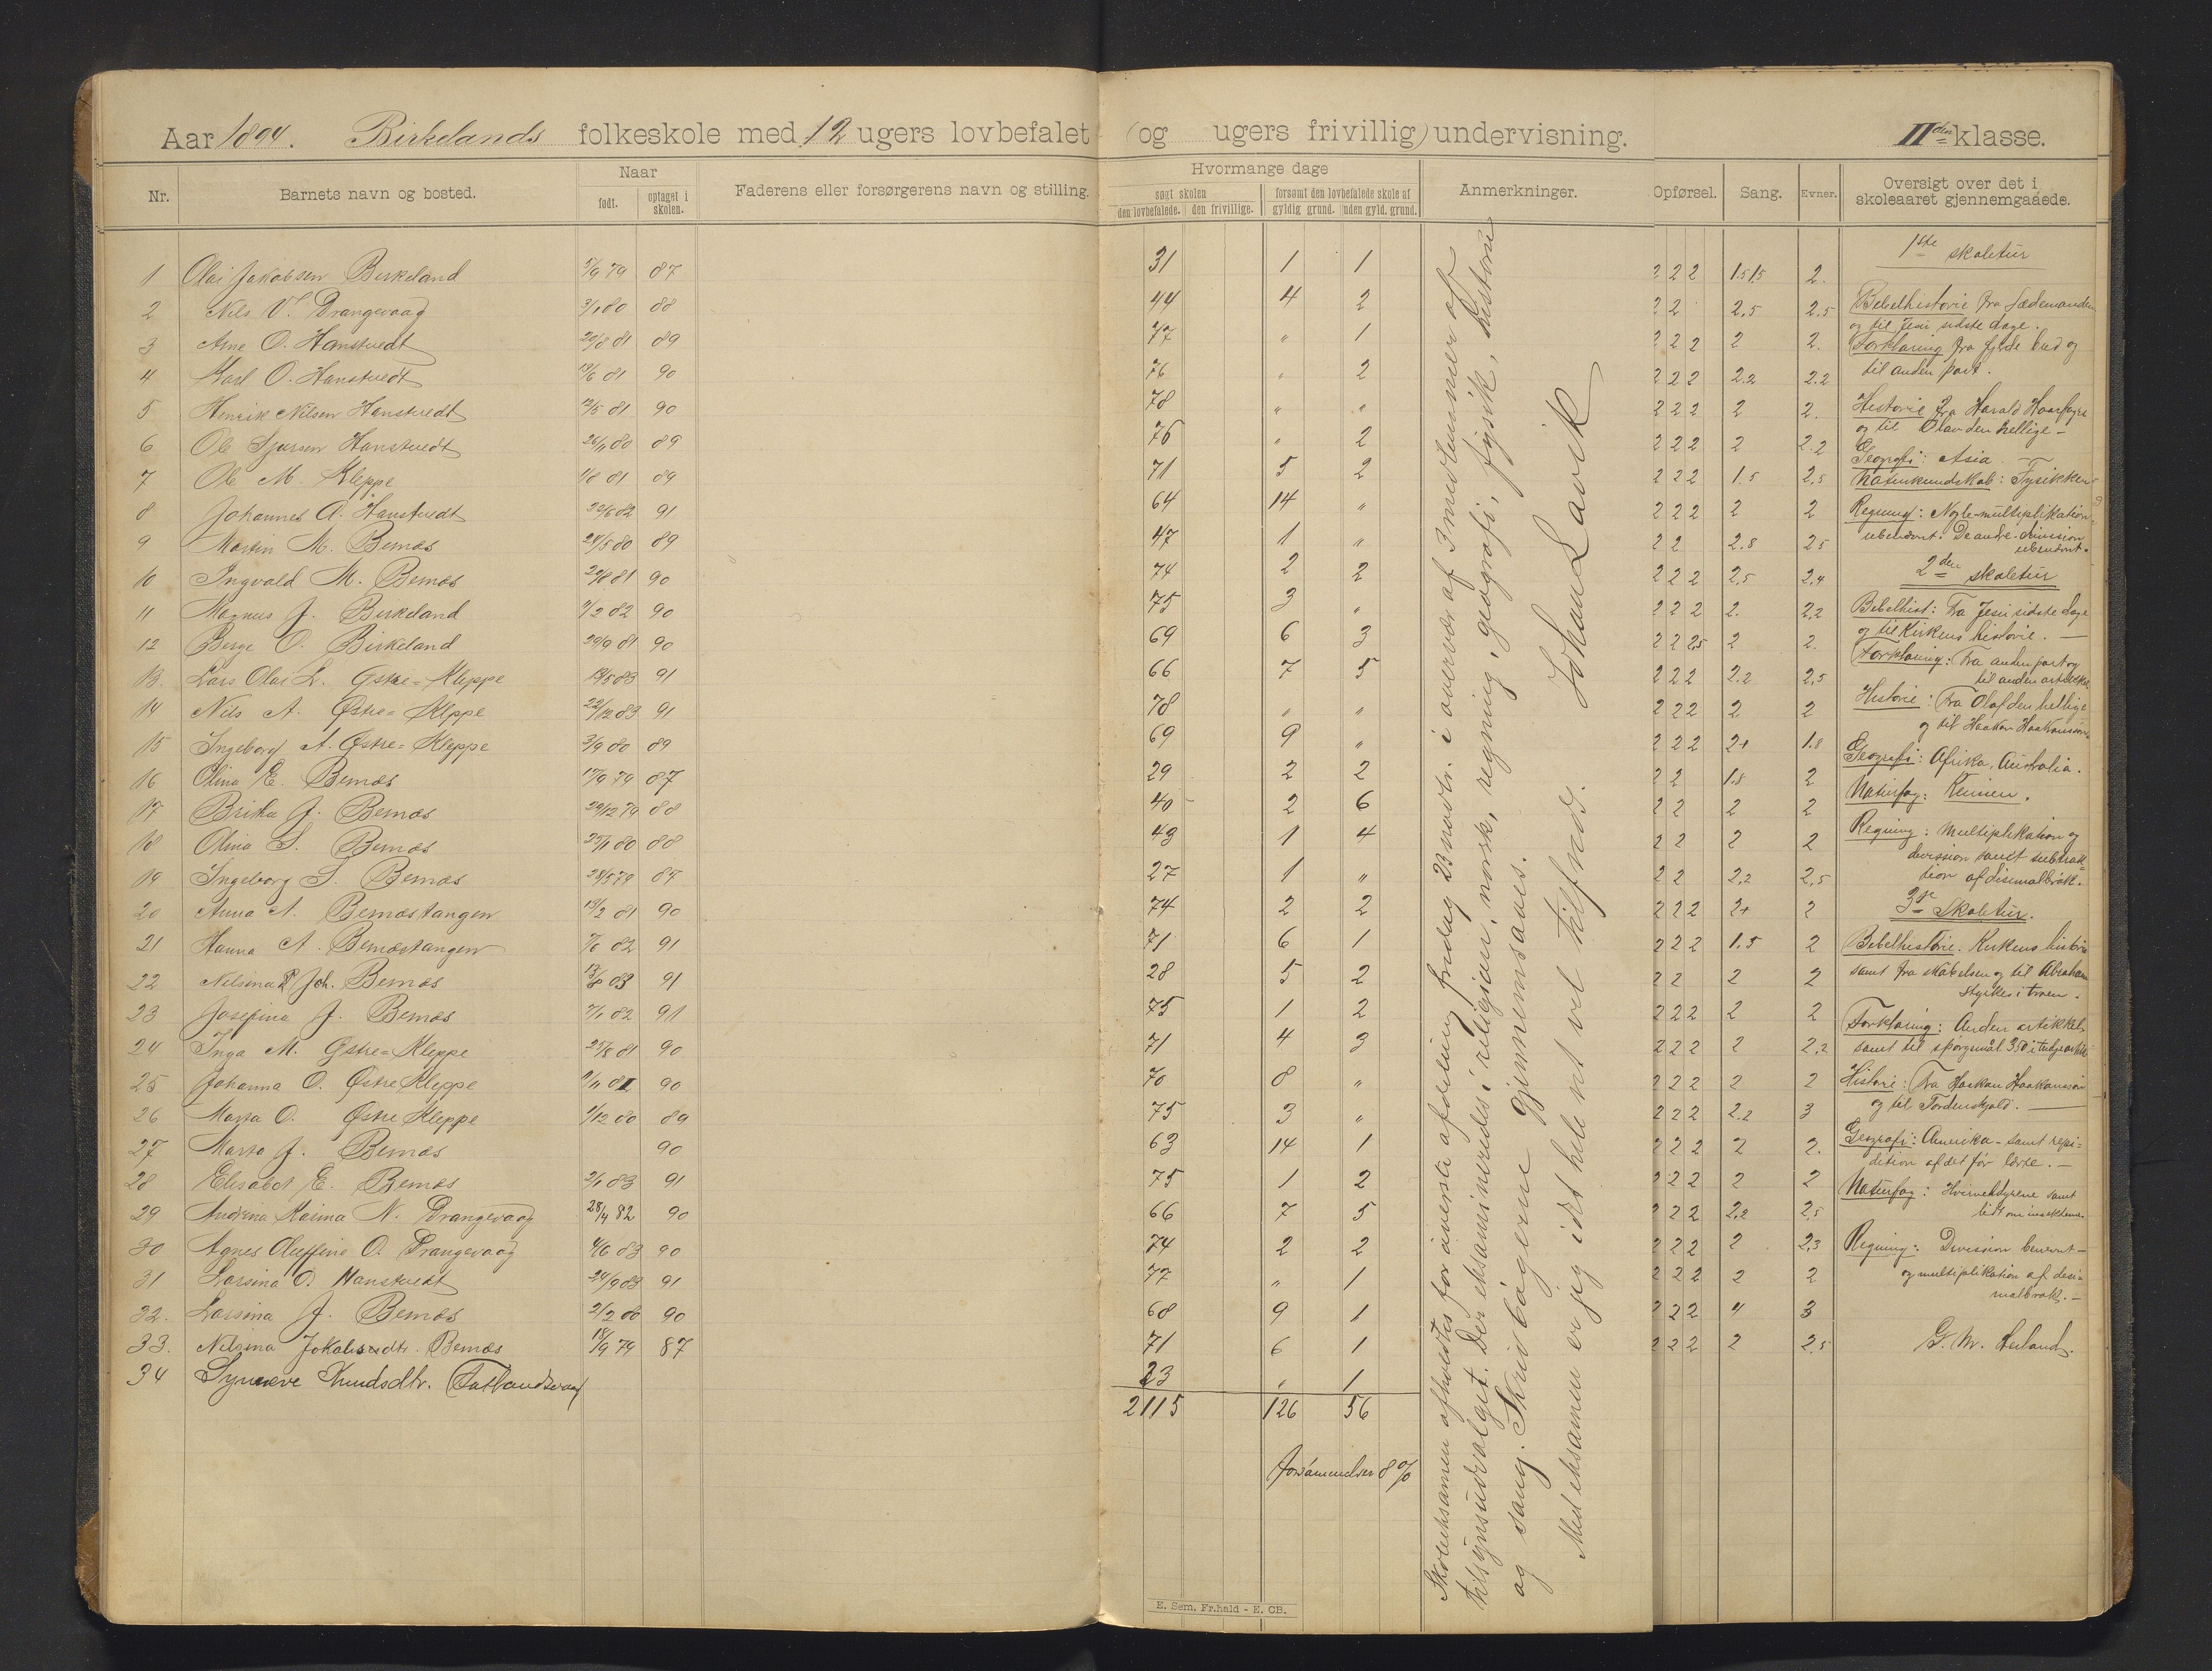 Aar 1894. Birkelands folkeskole med 12 ugers lovbefalet (og ugers frivillig) undervisning. IIden klasse.
Nr. Barnets navn og bosted. Naar født. optaget i skolen. Faderens eller forsørgerens navn og stilling.
Hvormange dage søgt skolen den lovbefalede. den frivillige. forsømt den lovbefalede skole af gyldig grund. uden gyld. grund. Anmerkninger. Opførsel. Sang. Evner. Oversigt over det i skoleaaret gjennemgaaede.
1 Olai Jakobsen Birkeland 5/9 79 87 31 1 1 2 2 2 1.5 1.5 2.
2 Nils V. Drangevaag 3/1 80 88 44 4 2 2 2 2.5 2.5
3 Arne O. Hanstvedt 20/8 81 89 77 " 1 2 2 2 2 2.
4 Karl O. Hanstvedt 19/6 81 90 76 " 2 2 2 2 2.2 2.2
5 Henrik Nilsen Hanstvedt 12/5 81 90 78 " " 2 2 2 2 2.
6 Ole Sjursen Hanstvedt 26/11 80 89 76 " 2 2 2 2 2 2.2
7 Ole M. Kleppe 1/8 81 89 71 5 2 2 2 2 1.5 2.5
8 Johannes A. Hanstvedt 22/6 82 91 64 14 " 2 2 2 2 2
9 Martin M. Bemæs 24/5 80 89 47 1 " 2 2 2.8 2.5
10 Ingvald M. Bemæs 20/8 81 90 74 2 2 2 2 2 2.5 2.4
11 Magnus J. Birkeland 9/2 82 90 75 3 " 2 2 2 2. 2.2
12 Berge O. Birkeland 29/9 81 90 69 6 3 2 2 2.5 2 2.
13. Lars Olai L. Østre=Kleppe 18/5 83 91 66 7 5 2 2 2 2.2 2.5
14 Nils A. Østre=Kleppe 22/12 83 91 78 " " 2 2 2 2 2
15 Ingeborg A. Østre=Kleppe 3/9 80 89 69 9 " 2 2 2 2+ 1.8
16 Olina E. Bemæs 17/9 79 87 29 2 2 2 2 1.8 2
17 Brita J. Bemæs 29/12 79 88 40 2 6 2 2 2 2
18 Olina S. Bemæs 25/1 80 88 43 1 4 2 2 2 2
19 Ingeborg S. Bemæs 28/5 79 87 27 1 " 2 2 2.2 2.5
20 Anna A. Bemæstangen 13/2 81 90 74 2 2 2 2 2 2+ 2
21 Hanna A. Bemæstangen 7/6 82 91 71 6 1 2 2 2 1.5 2
22 Nilsina Joh. Bemæs 13/8 83 91 28 5 2 2 2 2 2
23 Josefina J. Bemæs 7/1 82 91 75 1 2 2 2 2 2 2
24 Inga M. Østre=Kleppe 25/8 81 90 71 4 3 2 2 2 2 2.2
25 Johanna O. Østre Kleppe 9/11 81 90 70 8 " 2 2 2 2 2
26 Marta O. Østre Kleppe 1/12 80 89 75 3 " 2 2 2 2.2 3
27 Marta J. Bemæs 90 63 14 1 2 2 2 2 2.
28 Elisabet E. Bemæs 2/1 83 91 75 1 2 2 2 2 2 2
29 Andrna Karina N. Drangevaag 28/4 82 90 66 7 5 2 2 2 2.2 2.5
30 Agnes Oluffine O. Drangevaag 4/6 83 90 74 2 2 2 2 2 2 2.3
31 Larsina O. Hanstvedt 24/9 83 91 77 " 1 2 2 2 2 2
32. Larsina J. Bemæs 2/2 80 90 68 9 1 2 2 2 4 3
33. Nilsina Jokobsdtr. Bemæs 18/9 79 87 71 6 1 2 2 2 2 2.5
34 Synneve Knudsdtr. (Tatlandsvaag) 23 " 1
2115 126 56
forsømmelser 8 %
Skoleeksamen afholdtes for øverste afdeling fredag 23 novbr. i overvær af 3 medlemmer af
tilsynsudvalget. Der eksamineredes i religion, norsk, regning, geografi, fysik, historie
og sang. Skrivbøgerne gjennemsaaes.
Med eksamen er jeg i det hele nt vel tilfreds. Johan Lavik
1ste skoletur
Bibelhistorie fra Sædemanden
og til Jesu sidste dage.
Forklaring fra fjerde bud og
til anden part.
Historie fra Harald Haarfagre
og til Olav den hellige –
Geografi: Asia. –
Naturkundskab: Fysikken
Regning: Nogle-multiplikation
ubenævnt. De andre division
ubenævnt.
2den skoletur
Bibelhist: Fra Jesu sidste dage
og til Kirkens historie. –
Forklaring: Fra anden part og
til anden artikkel
Historie: Fra Olaf den hellige
og til Haakon Haakonsson.
Geografi: Afrika, Australia.
Naturfag: Kemien.
Regning: Multiplikation og
division samt subtrak=
tion af disimalbrøk.
3je Skoletur.
Bibelhistorie. Kirkens historie
samt fra skabelsen og til Abraham
styrkes i troen.
Forklaring: Anden artikkel,
samt til spørgsmål 350 i tredje artikkel
Historie: Fra Haakon Haakonsson
og til Tordenskjold. –
Geografi: Amerika – samt repi=
dition af det før lærte. –
Naturfag: Hvirveldyrene samt
lidt om insekterne.
Regning: Division benævnt –
og multiplikation af desi=
malbrøk. –
G. M. Heiland.
E. Sem, Fr.hald - E. CB.